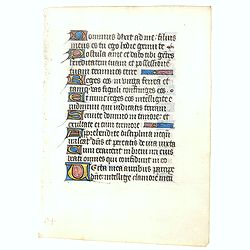 Dominus dixit ad me filius
meus es tu ego hodie genui te
Postula a me et dabo tibi gentes
hereditatem tuam et possessionē
tuam terminos terre
Reges eos in virga ferrea et
tanq̄ vas figuli confringes eos
Et nunc reges intelligite e
rudimini qui iudicatis terram
Seruite domino in timore et
exultate ei cum tremore
Apprehendite disciplinā ne qn̄
irascat̄ dn̄s et pereatis de via iusta
Cum exarserit in breui ira eius
beati omnes qui confidunt in eo
Verba mea auribus percipe
dn̄e intellige clamorē meū